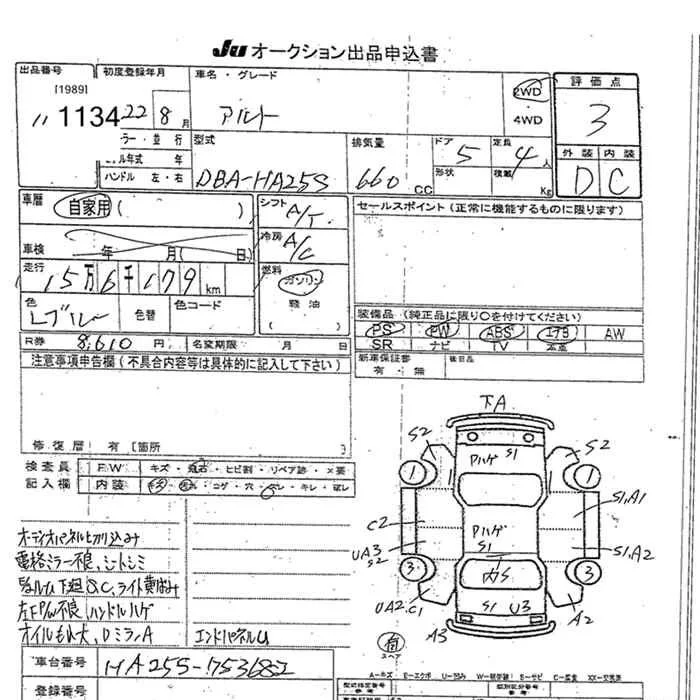 Ju オークション出品申込書
出品番号 初度登録年月 車名・グレード 評価点
[1989]
1134 22 8月 アルト 2WD 3
4WD
カラー・並行 型式 排気量 ドア 定員 外装 内装
モデル年式 年 5 4人
ハンドル 左・右 DBA-HA25S 660 CC 形状 積載 Kg D C
車歴 自家用( ) シフト A/T セールスポイント(正常に機能するものに限ります)
車検 年 月( 日) 冷房 A/C
走行 15万6千179km 燃料 ガソリン
軽油
色 Lブルー 色替 色コード
装備品(純正品に限り○を付けてください)
PS PW ABS エアB AW
SR ナビ TV 本革
R券 8,610円 名変期限 月 日
新車保証書 有・無 後日品
注意事項申告欄(不具合内容等は具体的に記入して下さい)
修復歴 有 [箇所 ]
検査員 FW キズ・飛石・ヒビ割・リペア跡・×要
記入欄 内装 キズ・汚れ・コゲ・穴・スレ・キレ・破レ
下A
S2 S1 S2
Pハゲ
1 1
C2 S1,A1
UA3 S2 Pハゲ S1 S1,A2
3 内S 3
UA2.C1 S1 U3 A2
A3
有
スペア
オーディオパネル切り込み
電格ミラー不良、シートシミ
下廻S.C,ライト黄ばみ
左FP/W不良 ハンドルハゲ
オイルもれ大、DミラーA エンドパネルU
車台番号 HA25S-753682
登録番号
A−キズ E−エクボ U−凹み W−補修跡 S−サビ C−腐食 XX−交換済
型式指定番号 類別区分番号